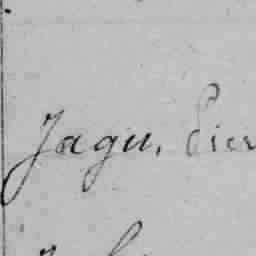 Jagu, Pier